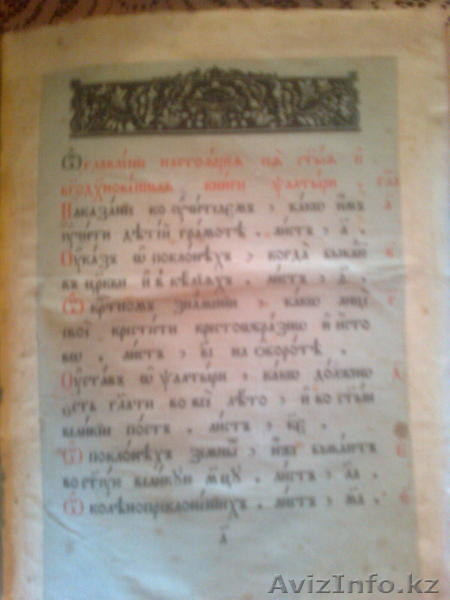 Ѡглавле́нїе настоѧ́щїѧ сеѧ̀ ст҃ы́ѧ и҆
бг҃одꙋхнове́нныѧ кни́ги ѱалты́ри , гла
Наказа́нїе ко ᲂу҆чи́телемъ , ка́кѡ и҆́мъ а҃
ᲂу҆чи́ти дѣ́тїй гра́мотѣ . ли́стъ , а҃ .
Оу҆ка́зъ ѡ҆ покло́нѣхъ , когда̀ быва́ютъ
въ цр҃кви и҆ в ке́лїѧхъ . ли́стъ ,
Ѡ҆ кр҃тномъ зна́менїи , ка́кѡ лицѐ
своѐ крести́ти крестоѡбра́знѡ и҆ и҆́сто
вѡ . ли́стъ , на ѡ҆боро́тѣ .
Оу҆ста́въ ѡ҆ ѱалты́ри , ка́кѡ до́лжнѡ
е҆́сть гл҃ати во всѐ лѣ́то , и҆ во ст҃ы́й
вели́кїй по́стъ . ли́стъ ,
Ѡ҆ покло́нѣхъ земны́хъ , и҆̀же быва́ютъ
во ст҃ꙋ́ю вели́кꙋю мц҃ꙋ . ли́стъ , л҃а .
Ѡ҆ колѣнопреклоне́нїихъ . ли́стъ , м҃а .
а҃
AvizInfo.kz